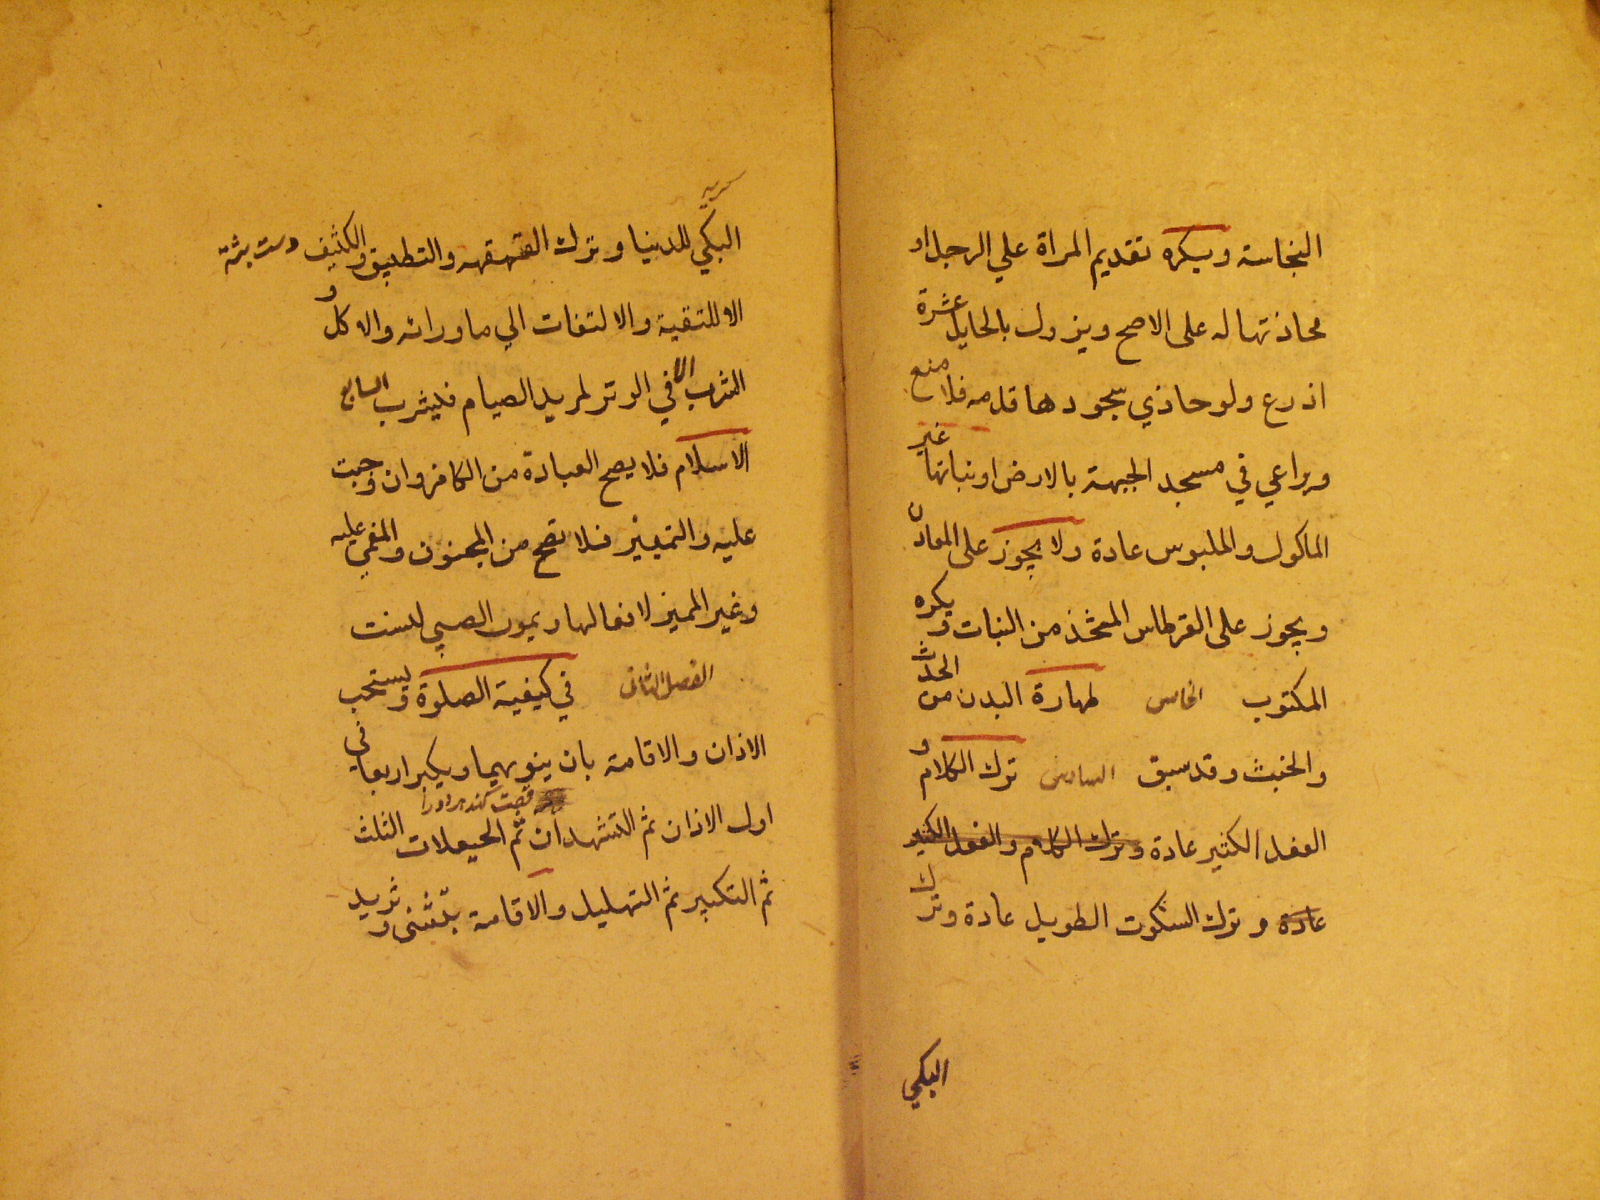 النجاسة ويكره تقديم المراة علي الرجل او
محاذتها له على الاصح ويزول بالحايل عشرة
اذرع ولو حاذي سجودها قدمه فلا منع
ويراعي في مسجد الجبهة بالارض او نباتها غير
الماكول والملبوس عادة ولا يجوز على المعادن
ويجوز على القرطاس المتخذ من النبات ويكره
المكتوب الخامس طهارة البدن من الحدث
والخبث وقد سبق السادس ترك الكلام و
الفعل الكثير عادة وترك الكلام والفعل الكثير
عادة و ترك السكوت الطويل عادة وترك
البكي
البكي للدنيا وترك القهقهه والتطبيق والكتف
الا للتقية والالتفات الي ما ورائه والاكل و
الشرب الا في الوتر لمريد الصيام فيشرب السابع
الاسلام فلا يصح العبادة من الكافر وان وجبت
عليه والتمييز فلا تصح من المجنون والمغمي عليه
وغير المميز لافعالها ويمرن الصبي لست
الفصل الثانى في كيفية الصلوة ويستحب
الاذان والاقامة بان ينويهما ويكبر اربعا في
اول الاذان ثم التشهدان ثم الحيعلات الثلث
ثم التكبير ثم التهليل والاقامة مثنى ويزيد